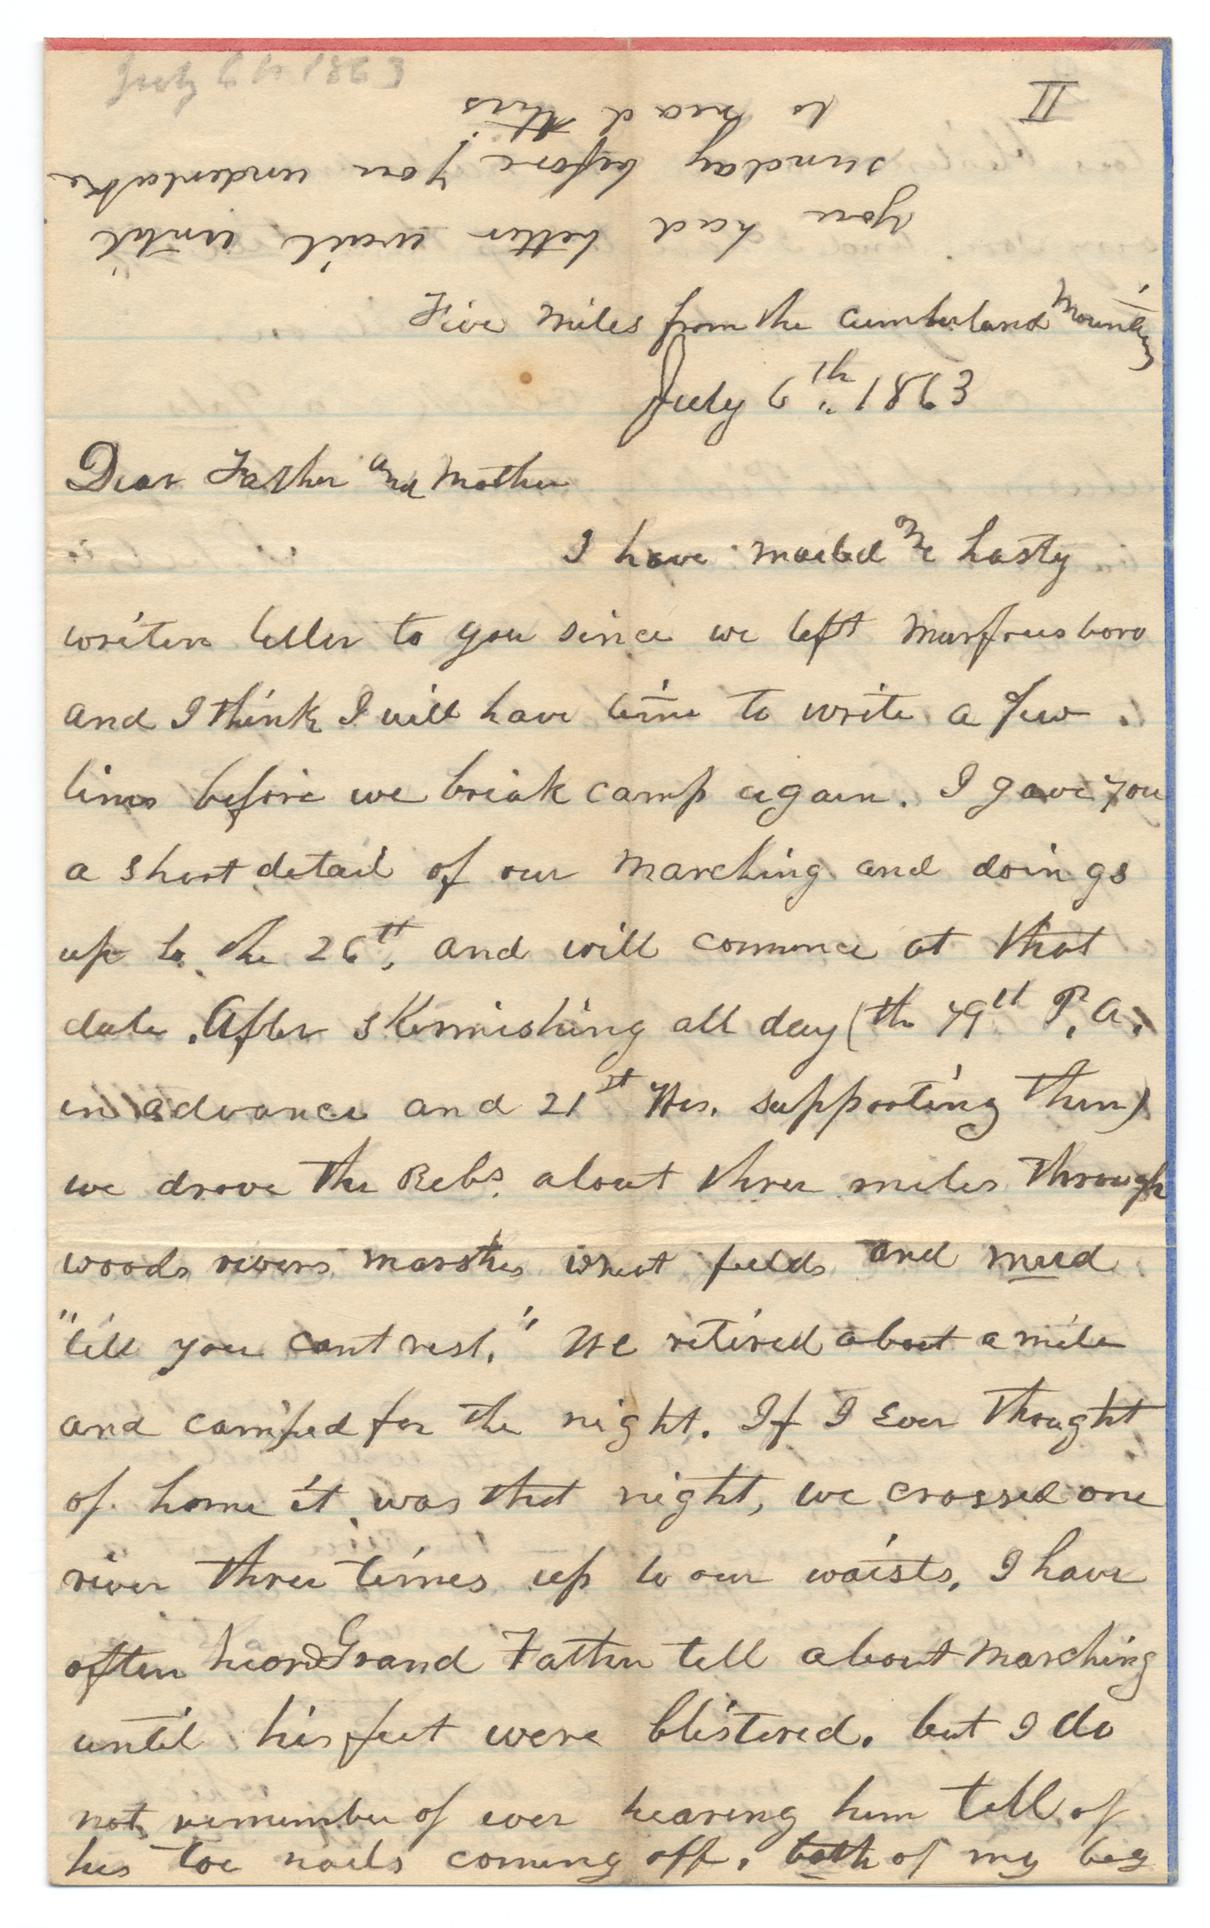 July 6th 1863
II
you had better wait until
sunday before you undertake
to read this!
Five miles from the Cumberland Mountains
July 6th 1863
Dear Father and Mother
I have mailed one hasty
writen letter to you since we left Murfreesboro
and I think I will have time to write a few
lines before we break camp again. I gave you
a short detail of our marching and doings
up to the 26th, and will commence at that
date. After skermishing all day (the 79th P.A.
in advance and 21st Wis. supporting them)
we drove the Rebs. about three miles through
woods rivers marshes wheat fields and mud
"till you cant rest." We retired about a mile
and camped for the night. If I ever thought
of home it was that night, we crossed one
river three times up to our waists. I have
often heard Grand Father tell about marching
until his feet were blistered. but I do
not remember of ever hearing him tell of
his toe nails coming off. both of my big